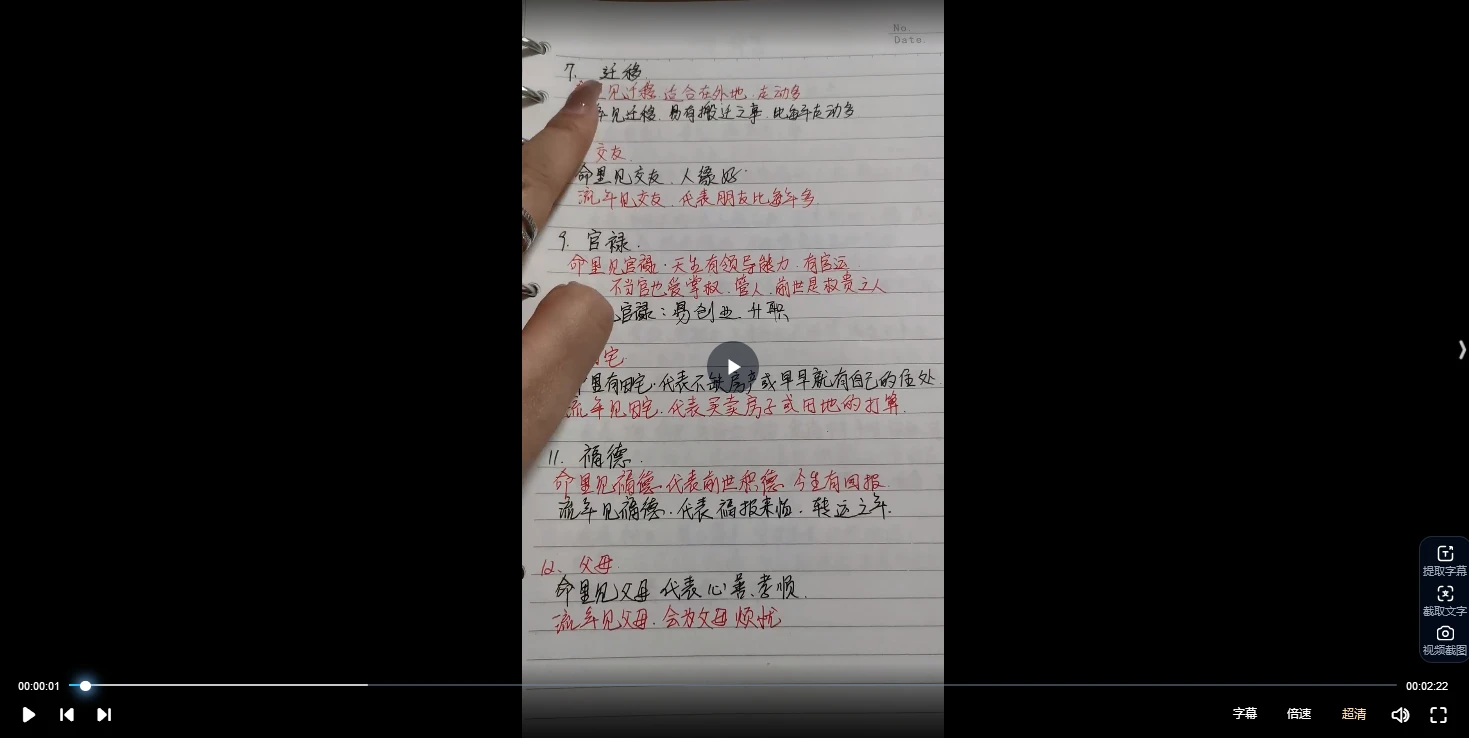 No.
Date.
7. 迁移.
见迁移.适合在外地.走动多
年见迁移.易有搬迁之事.比每年走动多
交友.
命里见交友.人缘好.
流年见交友.代表朋友比每年多
9. 官禄.
命里见官禄.天生有领导能力.有官运
不当官也爱掌权.管人.前世是权贵之人
官禄:易创业.升职
宅
里有田宅.代表不缺房产或早早就有自己的住处.
流年见田宅.代表买卖房子或田地的打算.
11. 福德.
命里见福德.代表前世积德.今生有回报.
流年见福德.代表福报来临.转运之年.
12、父母.
命里见父母 代表心善.孝顺.
流年见父母.会为父母烦忧
提取字幕
截取文字
视频截图
00:00:01
00:02:22
字幕 倍速 超清